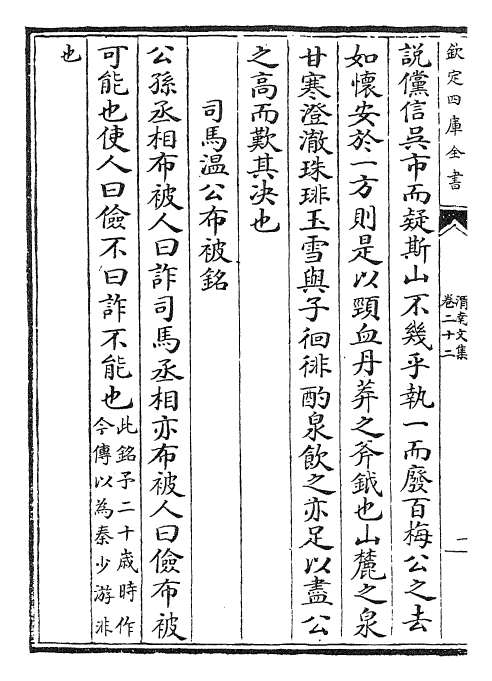 欽定四庫全書
渭南文集
卷二十二
一
說儻信吳市而疑斯山不幾乎執一而廢百梅公之去
如懷安於一方則是以頸血丹莽之斧鉞也山麓之泉
甘寒澄澈珠琲玉雪與子徊徘酌泉飲之亦足以盡公
之高而歎其決也
司馬溫公布被銘
公孫丞相布被人曰詐司馬丞相亦布被人曰儉布被
可能也使人曰儉不曰詐不能也
此銘予二十歲時作
今傳以為秦少游非
也